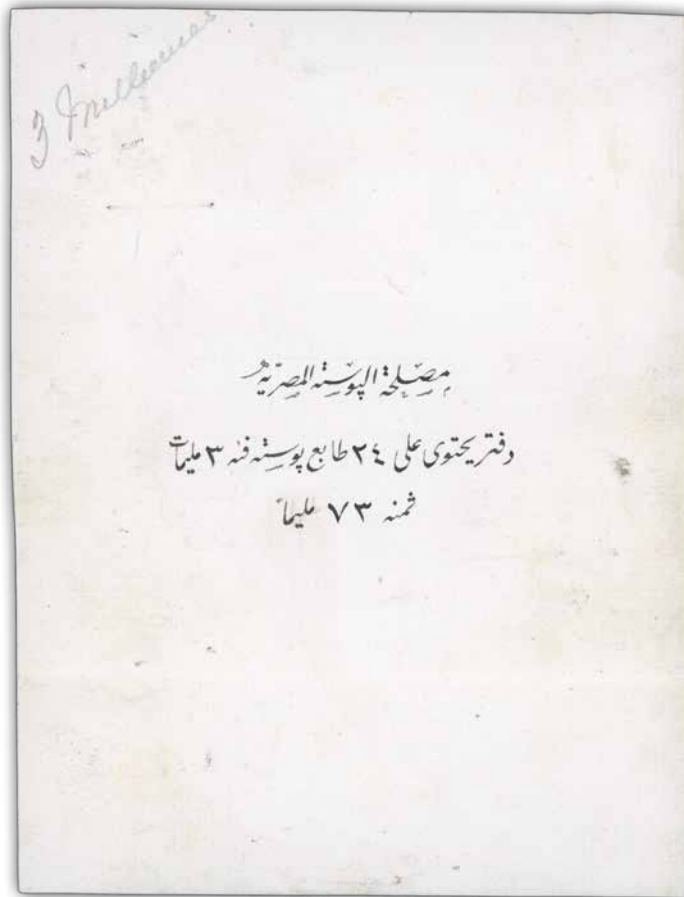 3 Milliemes
مصلحة البوستة المصرية
دفتر يحتوى على ٢٤ طابع بوسته فئة ٣ مليمات
ثمنه ٧٣ مليماً